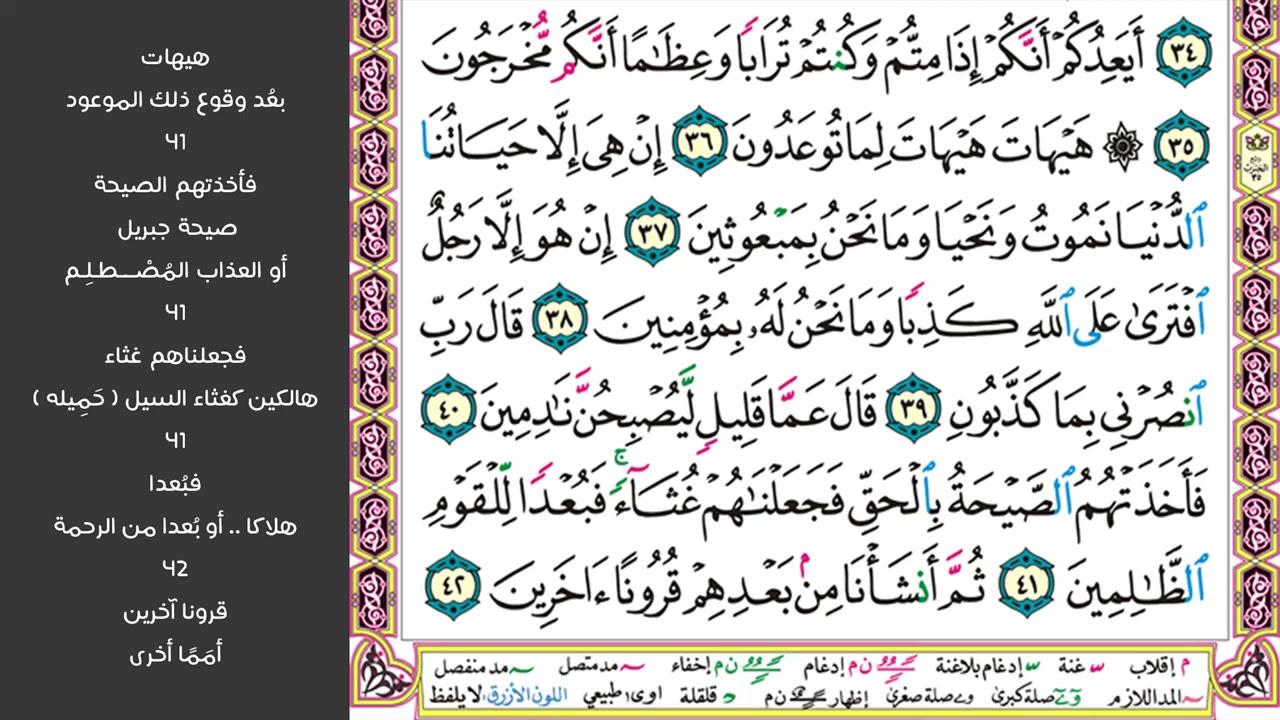 هيهات
بعُد وقوع ذلك الموعود
41
فأخذتهم الصيحة
صيحة جبريل
أو العذاب المُصْــطـلِـم
41
فجعلناهم غثاء
هالكين كغثاء السيل ( حَمِيله )
41
فبُعدا
هلاكا .. أو بُعدا من الرحمة
42
قرونا آخرين
أمَمًا أخرى
٣٤ أَيَعِدُكُمْ أَنَّكُمْ إِذَا مِتُّمْ وَكُنتُمْ تُرَابًا وَعِظَٰمًا أَنَّكُم مُّخْرَجُونَ
٣٥ ۞ هَيْهَاتَ هَيْهَاتَ لِمَا تُوعَدُونَ ٣٦ إِنْ هِىَ إِلَّا حَيَاتُنَا
ٱلدُّنْيَا نَمُوتُ وَنَحْيَا وَمَا نَحْنُ بِمَبْعُوثِينَ ٣٧ إِنْ هُوَ إِلَّا رَجُلٌ
ٱفْتَرَىٰ عَلَى ٱللَّهِ كَذِبًا وَمَا نَحْنُ لَهُۥ بِمُؤْمِنِينَ ٣٨ قَالَ رَبِّ
ٱنصُرْنِى بِمَا كَذَّبُونِ ٣٩ قَالَ عَمَّا قَلِيلٍ لَّيُصْبِحُنَّ نَٰدِمِينَ ٤٠
فَأَخَذَتْهُمُ ٱلصَّيْحَةُ بِٱلْحَقِّ فَجَعَلْنَٰهُمْ غُثَآءً ۚ فَبُعْدًا لِّلْقَوْمِ
ٱلظَّٰلِمِينَ ٤١ ثُمَّ أَنشَأْنَا مِنۢ بَعْدِهِمْ قُرُونًا ءَاخَرِينَ ٤٢
م إقلاب غنة إدغام بلاغنة ن م إدغام ن م إخفاء مد متصل مد منفصل
المد اللازم صلة كبرى صلة صغرى إظهار ن م اوى طبيعي قلقلة اللون الأزرق لا يلفظ